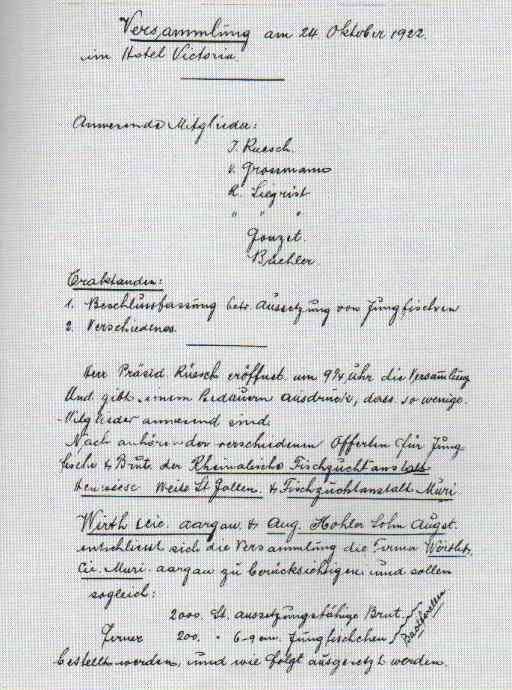 Versammlung am 24 Oktober 1922.
im Hotel Victoria.
Anwesende Mitglieder:
J. Ruesch.
V. Grossmann
R. Siegrist
" " "
Gonzet.
Buchler.
Traktanden:
1. Beschlussfassung betr. Aussetzung von Jungfischen
2. Verschiedenes.
Herr Präsid Rüesch eröffnet um 9¼ Uhr die Versamlung
Und gibt einem Bedauern ausdruck, dass so wenige
Mitglieder anwesend sind.
Nach anhören der verschiedenen Offerten für Jung
fische & Brut. der Rheinalische Fischzuchtanstalt
Weite St Gallen. & Fischzuchtanstalt Muri
Wirth & Cie. Aargau. & Aug. Hohler Sohn Augst.
entschliesst sich die Versammlung die Firma Wirth &
Cie. Muri. Aargau zu berücksichtigen und sollen
sogleich:
2000. St. aussetzungsfähige Brut.
Ferner 200. " 6-9 cm. Jungfischchen
Bachforellen
bestellt werden, und wie folgt ausgesetzt werden.